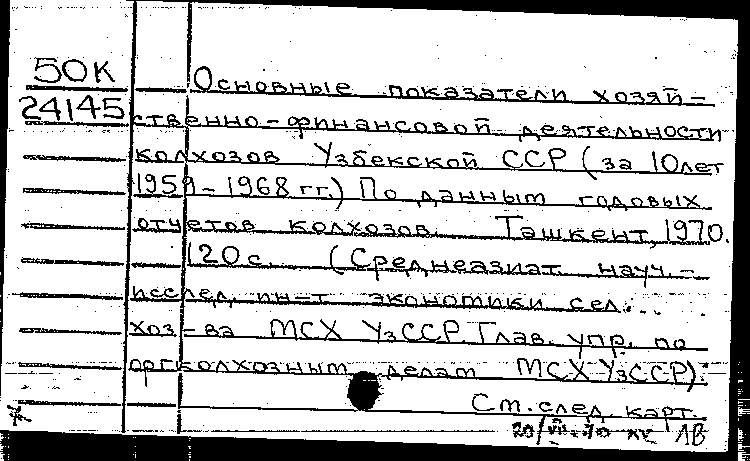 50К
24145
Основные показатели хозяй-
ственно-финансовой деятельности
колхозов Узбекской ССР (за 10 лет
1959-1968 гг.) По данным годовых
отчетов колхозов. Ташкент, 1970.
120 с. (Среднеазиат. науч.-
исслед. ин-т экономики сел.
хоз-ва МСХ УзССР. Глав. упр. по
орг. колхозным делам МСХ УзССР).
См. след. карт.
20/VII-70 ЛВ